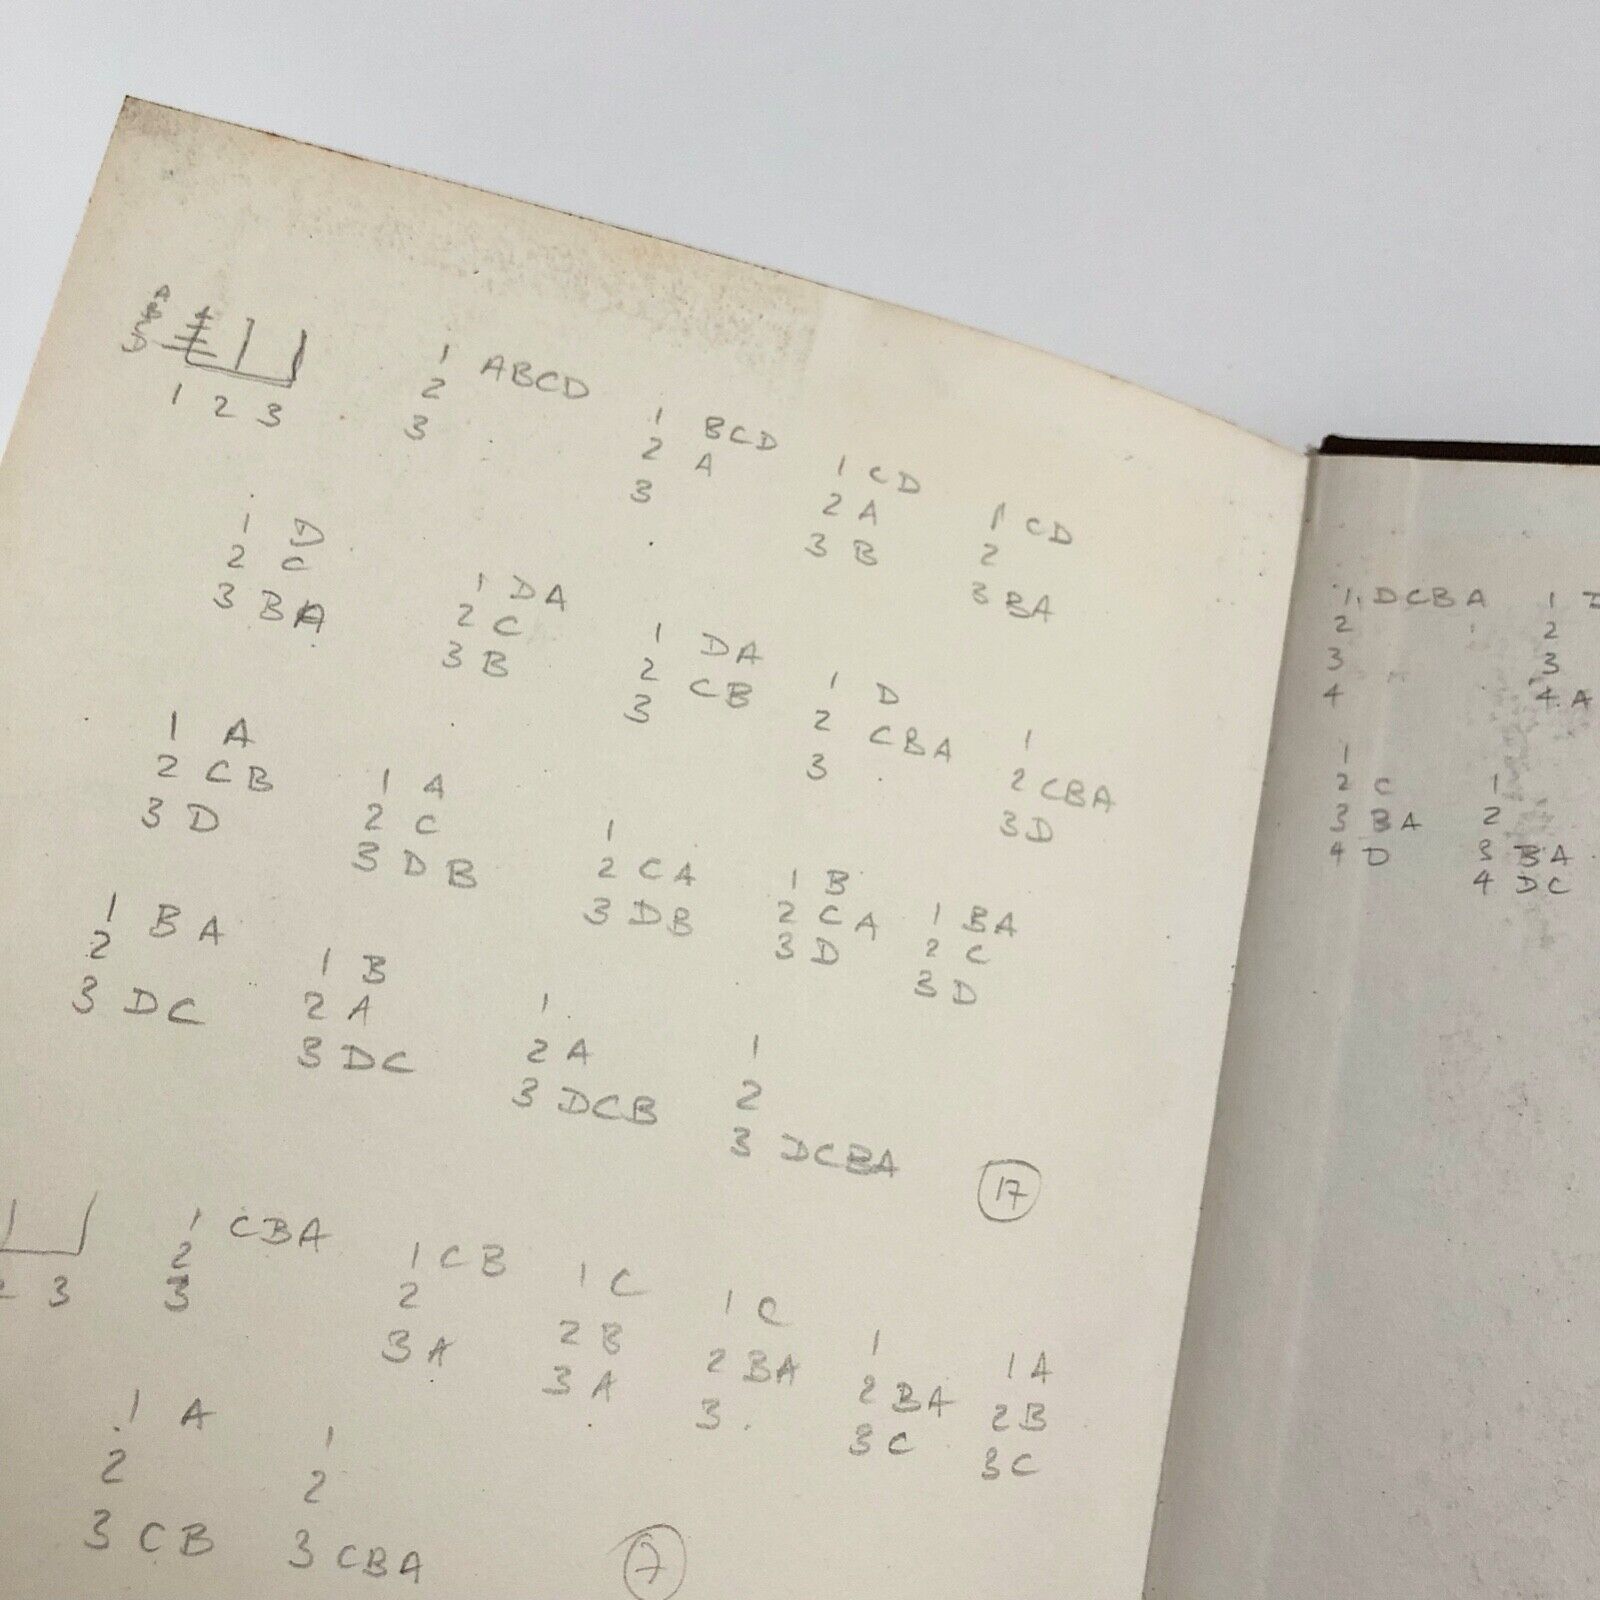 A
B
C
D
1 2 3
1 ABCD
2
3
1 BCD
2 A
3
1 CD
2 A
3 B
1 CD
2
3 BA
1 D
2 C
3 BA
1 DA
2 C
3 B
1 DA
2 CB
3
1 D
2 CBA
3
1
2 CBA
3 D
1 A
2 CB
3 D
1 A
2 C
3 DB
1
2 CA
3 DB
1 B
2 CA
3 D
1 BA
2 C
3 D
1 BA
2
3 DC
1 B
2 A
3 DC
1
2 A
3 DCB
1
2
3 DCBA
17
2 3
1 CBA
2
3
1 CB
2
3 A
1 C
2 B
3 A
1 C
2 BA
3
1
2 BA
3 C
1 A
2 B
3 C
1 A
2
3 CB
1
2
3 CBA
7
1 DCBA
2
3
4
1
2
3
4 A
1
2 C
3 BA
4 D
1
2
3 BA
4 DC